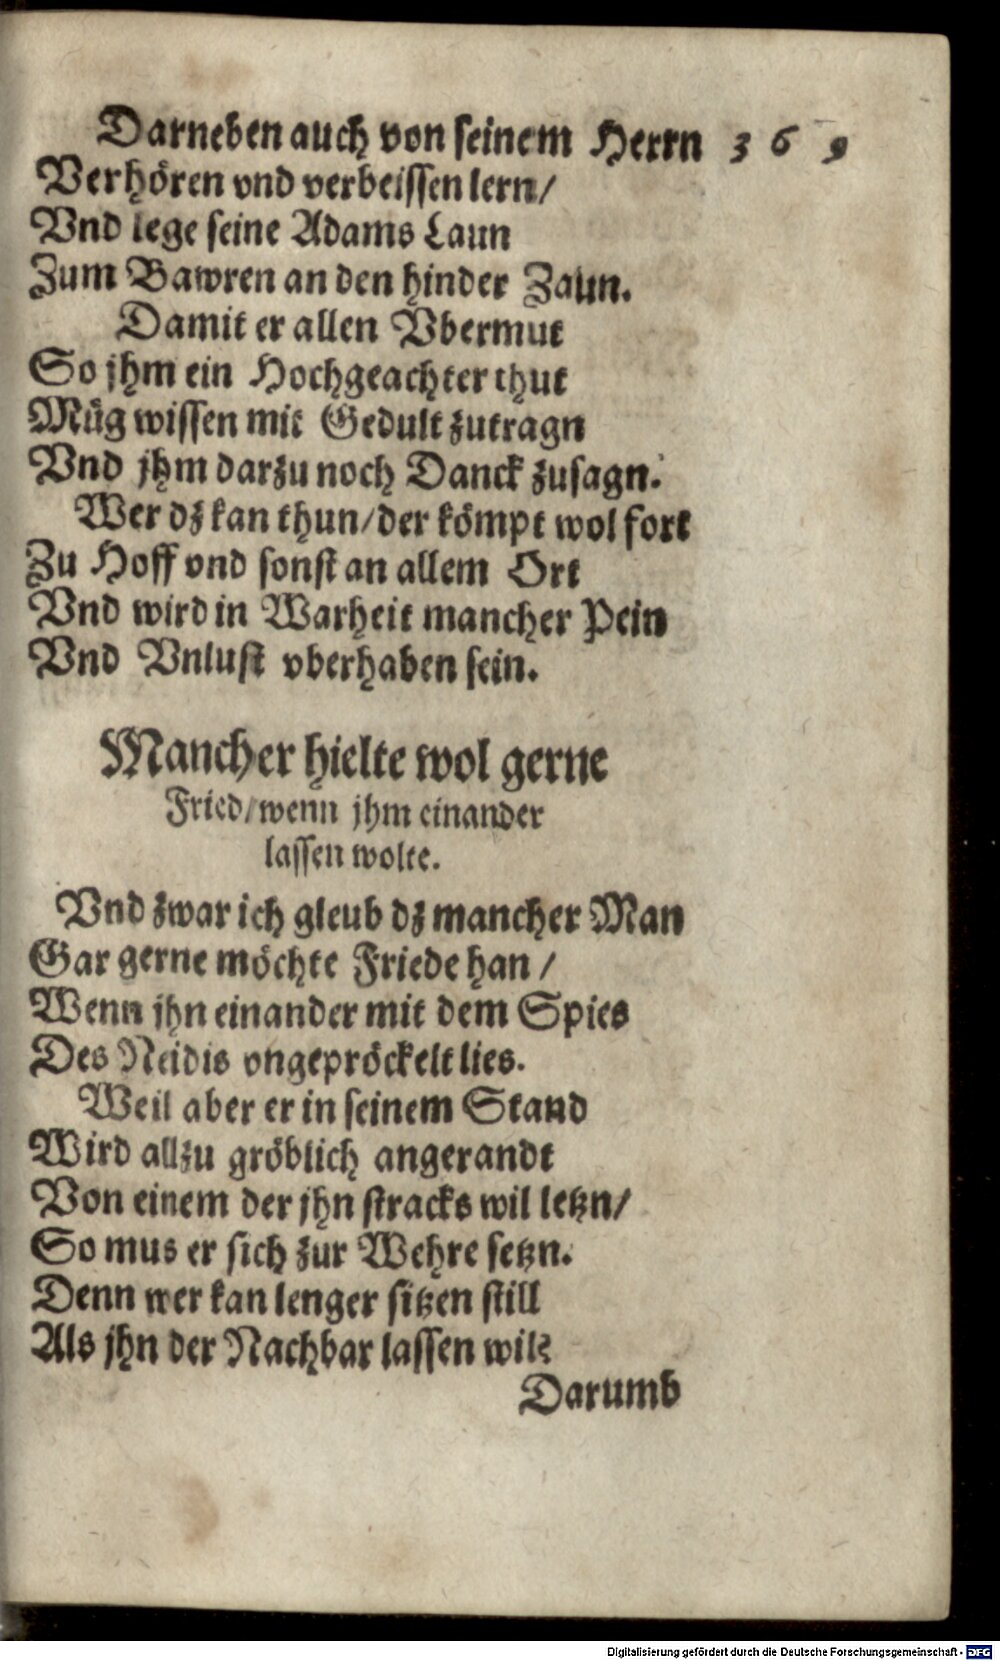 Darneben auch von seinem Herrn 369
Verhören vnd verbeissen lern/
Vnd lege seine Adams Laun
Zum Bawren an den hinder Zaun.
Damit er allen Vbermut
So jhm ein Hochgeachter thut
Müg wissen mit Gedult zutragn
Vnd jhm darzu noch Danck zusagn.
Wer dz kan thun/der kömpt wol fort
Zu Hoff vnd sonst an allem Ort
Vnd wird in Warheit mancher Pein
Vnd Vnlust vberhaben sein.
Mancher hielte wol gerne
Fried/wenn jhm einander
lassen wolte.
Vnd zwar ich gleub dz mancher Man
Gar gerne möchte Friede han/
Wenn jhn einander mit dem Spies
Des Neidis vngepröckelt lies.
Weil aber er in seinem Stand
Wird allzu gröblich angerandt
Von einem der jhn stracks wil letzn/
So mus er sich zur Wehre setzn.
Denn wer kan lenger sitzen still
Als jhn der Nachbar lassen wil?
Darumb
Digitalisierung gefördert durch die Deutsche Forschungsgemeinschaft - DFG